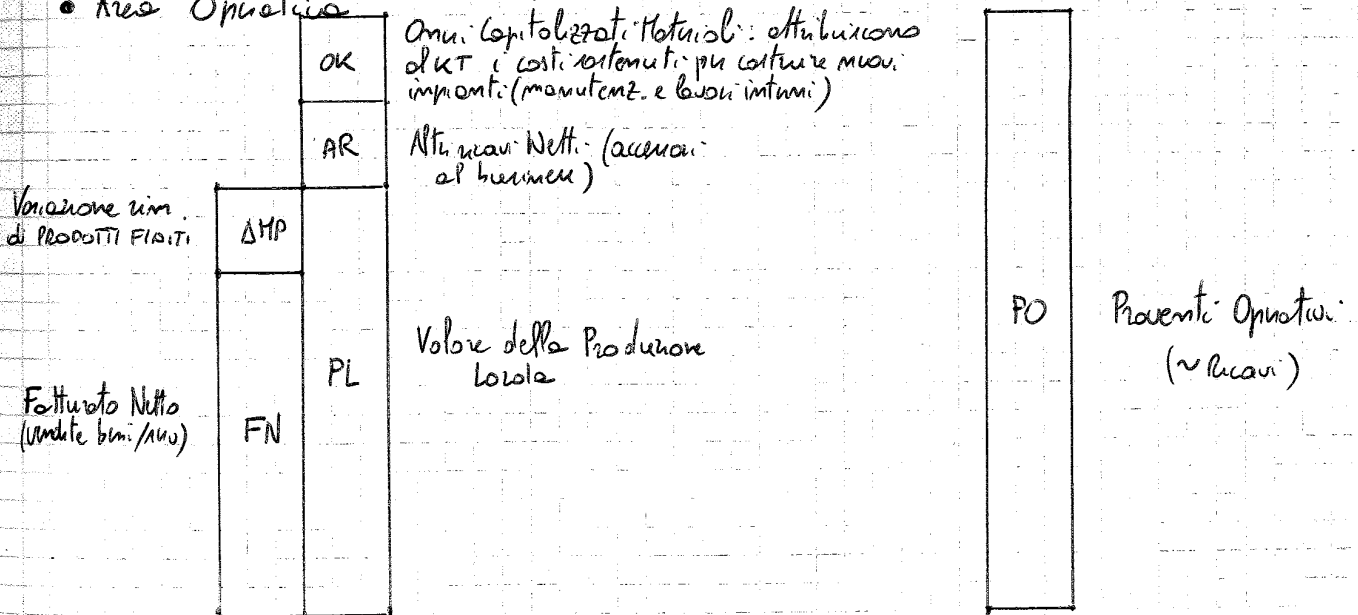 • Area Operativa
OK
Oneri Capitalizzati Materiali: attribuiscono
al KT i costi sostenuti per costruire nuovi
impianti (manutenz. e lavori interni)
AR
Altri ricavi Netti (accessori
al business)
Variazione rim.
di PRODOTTI FINITI
ΔMP
PL
Valore della Produzione
Lorda
Fatturato Netto
(vendite beni/serv)
FN
PO
Proventi Operativi
(~ Ricavi)